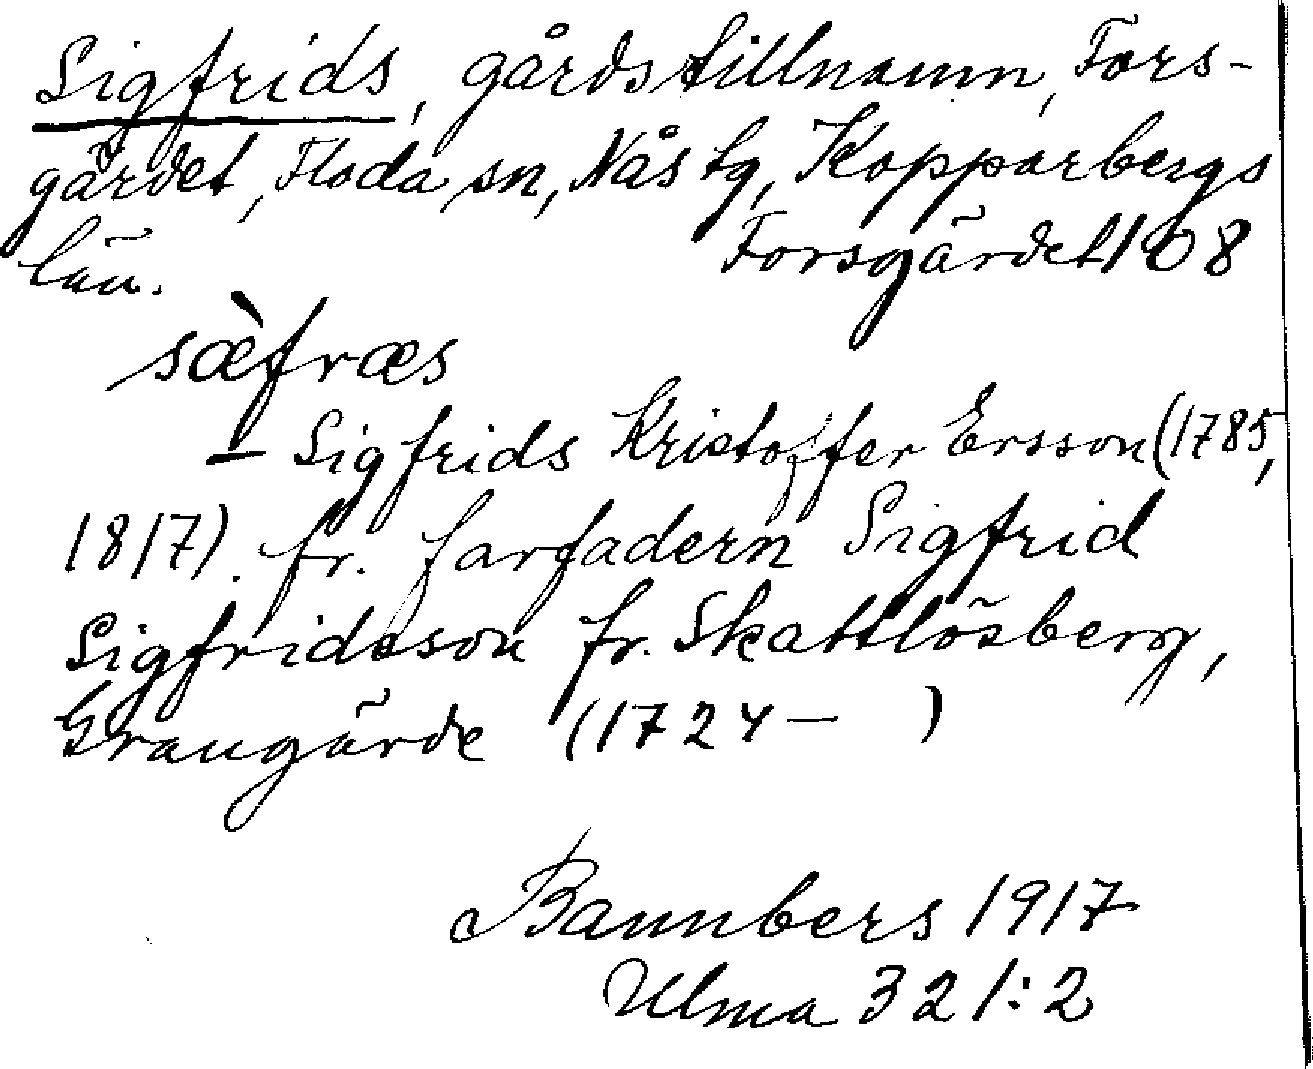 Sigfrids, gårdstillnamn, Fors-
gärdet, Floda sn, Nås tg, Kopparbergs
län. Forsgärdet 108
sæ̀fræs
— Sigfrids Kristoffer Ersson (1785,
1817). fr. farfadern Sigfrid
Sigfridsson fr. Skattlösberg,
Grangärde (1724 — )
Bannbers 1917
Ulma 321:2